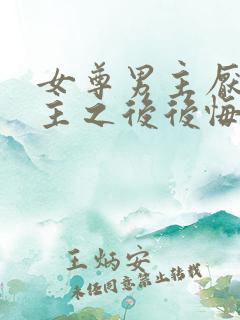 女尊男主厌
主之後後悔
王炳安
未经同意禁止转载